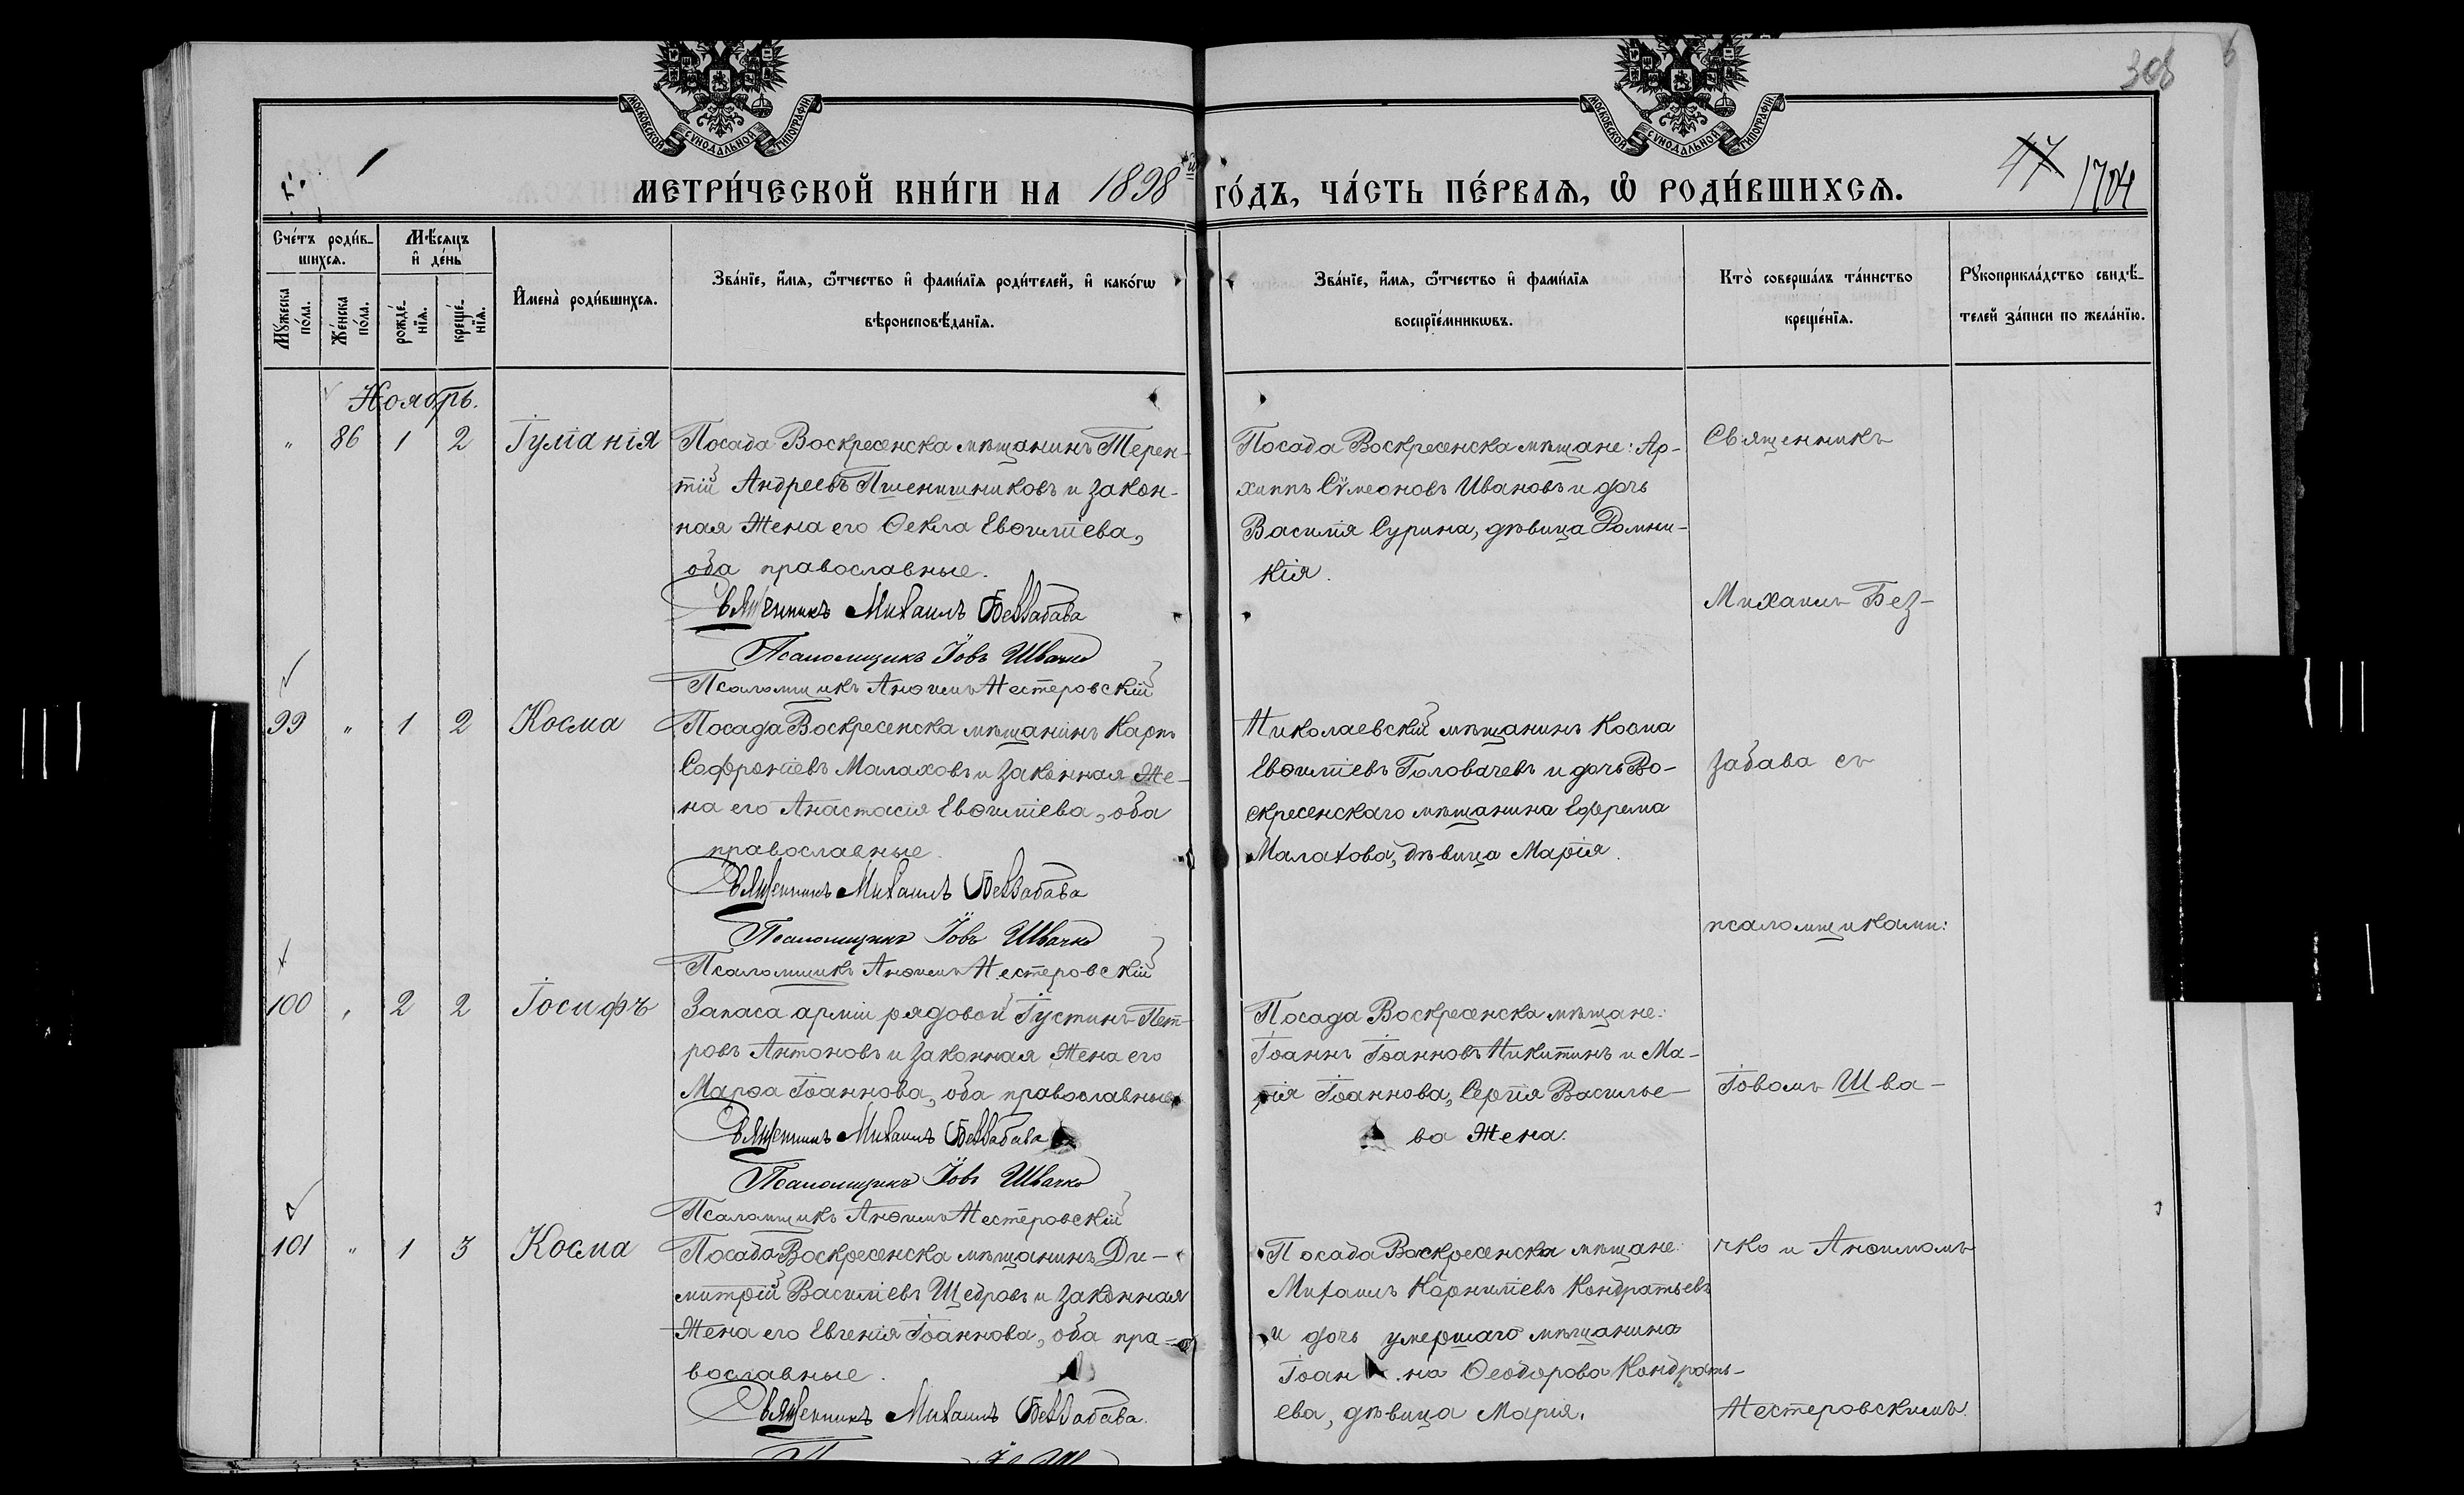 МОСКОВСКОЙ СѴНОДАЛЬНОЙ ТИПОГРАФІИ
МОСКОВСКОЙ СѴНОДАЛЬНОЙ ТИПОГРАФІИ
308
МЕТРИ́ЧЕСКОЙ КНИ́ГИ НА 1898 ГО́ДЪ, ЧА́СТЬ ПЕ́РВАѦ, Ѽ РОДИ́ВШИХСѦ.
47 1704
Сче́тъ роди́в-
шихсѧ.
Мѣ́сяцъ
и҆ де́нь
Мꙋ́жеска
по́ла.
Же́нска
по́ла.
рожде́-
нїѧ.
креще́-
нїѧ.
И҆мена̀ роди́вшихсѧ.
Зва́нїе, и҆́мѧ, ѻ҆́тчество и҆ фами́лїѧ роди́телей, и҆ како́гѡ
вѣроисповѣ́данїѧ.
Зва́нїе, и҆́мѧ, ѻ҆́тчество и҆ фами́лїѧ
воспрїе́мникѡвъ.
Кто̀ соверша́лъ та́инство
креще́нїѧ.
Рꙋкоприкла́дство свидѣ́-
телей за́писи по жела́нїю.
Ноябрь.
" 86 1 2 Іуліанія
Посада Воскресенска мѣщанинъ Терен-
тій Андреевъ Пшенишниковъ и закон-
ная жена его Ѳекла Евѳиміева,
оба православные.
Священникъ Михаилъ Беззабава
Псаломщикъ Іовъ Швачко
Псаломщикъ Анѳимъ Нестеровскій
Посада Воскресенска мѣщане: Ар-
хиппъ Сѵмеоновъ Ивановъ и дочь
Василія Сурина, дѣвица Домни-
кія.
99 " 1 2 Косма
Посада Воскресенска мѣщанинъ Карпъ
Софроніевъ Малаховъ и законная же-
на его Анастасія Евѳиміева, оба
православные.
Священникъ Михаилъ Беззабава
Псаломщикъ Іовъ Швачко
Псаломщикъ Анѳимъ Нестеровскій
Николаевскій мѣщанинъ Косма
Евѳиміевъ Головачевъ и дочь Во-
скресенскаго мѣщанина Ефрема
Малахова, дѣвица Марія.
100 " 2 2 Іосифъ
Запаса арміи рядовой Іустинъ Пет-
ровъ Антоновъ и законная жена его
Марѳа Іоаннова, оба православные.
Священникъ Михаилъ Беззабава
Псаломщикъ Іовъ Швачко
Псаломщикъ Анѳимъ Нестеровскій
Посада Воскресенска мѣщане:
Іоаннъ Іоанновъ Никитинъ и Ма-
рія Іоаннова, Сергія Василье-
ва жена.
101 " 1 3 Косма
Посада Воскресенска мѣщанинъ Ди-
митрій Василіевъ Щедровъ и законная
жена его Евгенія Іоаннова, оба пра-
вославные.
Священникъ Михаилъ Беззабава.
Посада Воскресенска мѣщане:
Михаилъ Корниліевъ Кондратьевъ
и дочь умершаго мѣщанина
Іоанна Ѳеодорова Кондрать-
ева, дѣвица Марія.
Священникъ
Михаилъ Без-
забава съ
псаломщиками:
Іовомъ Шва-
чко и Анѳимомъ
Нестеровскимъ.